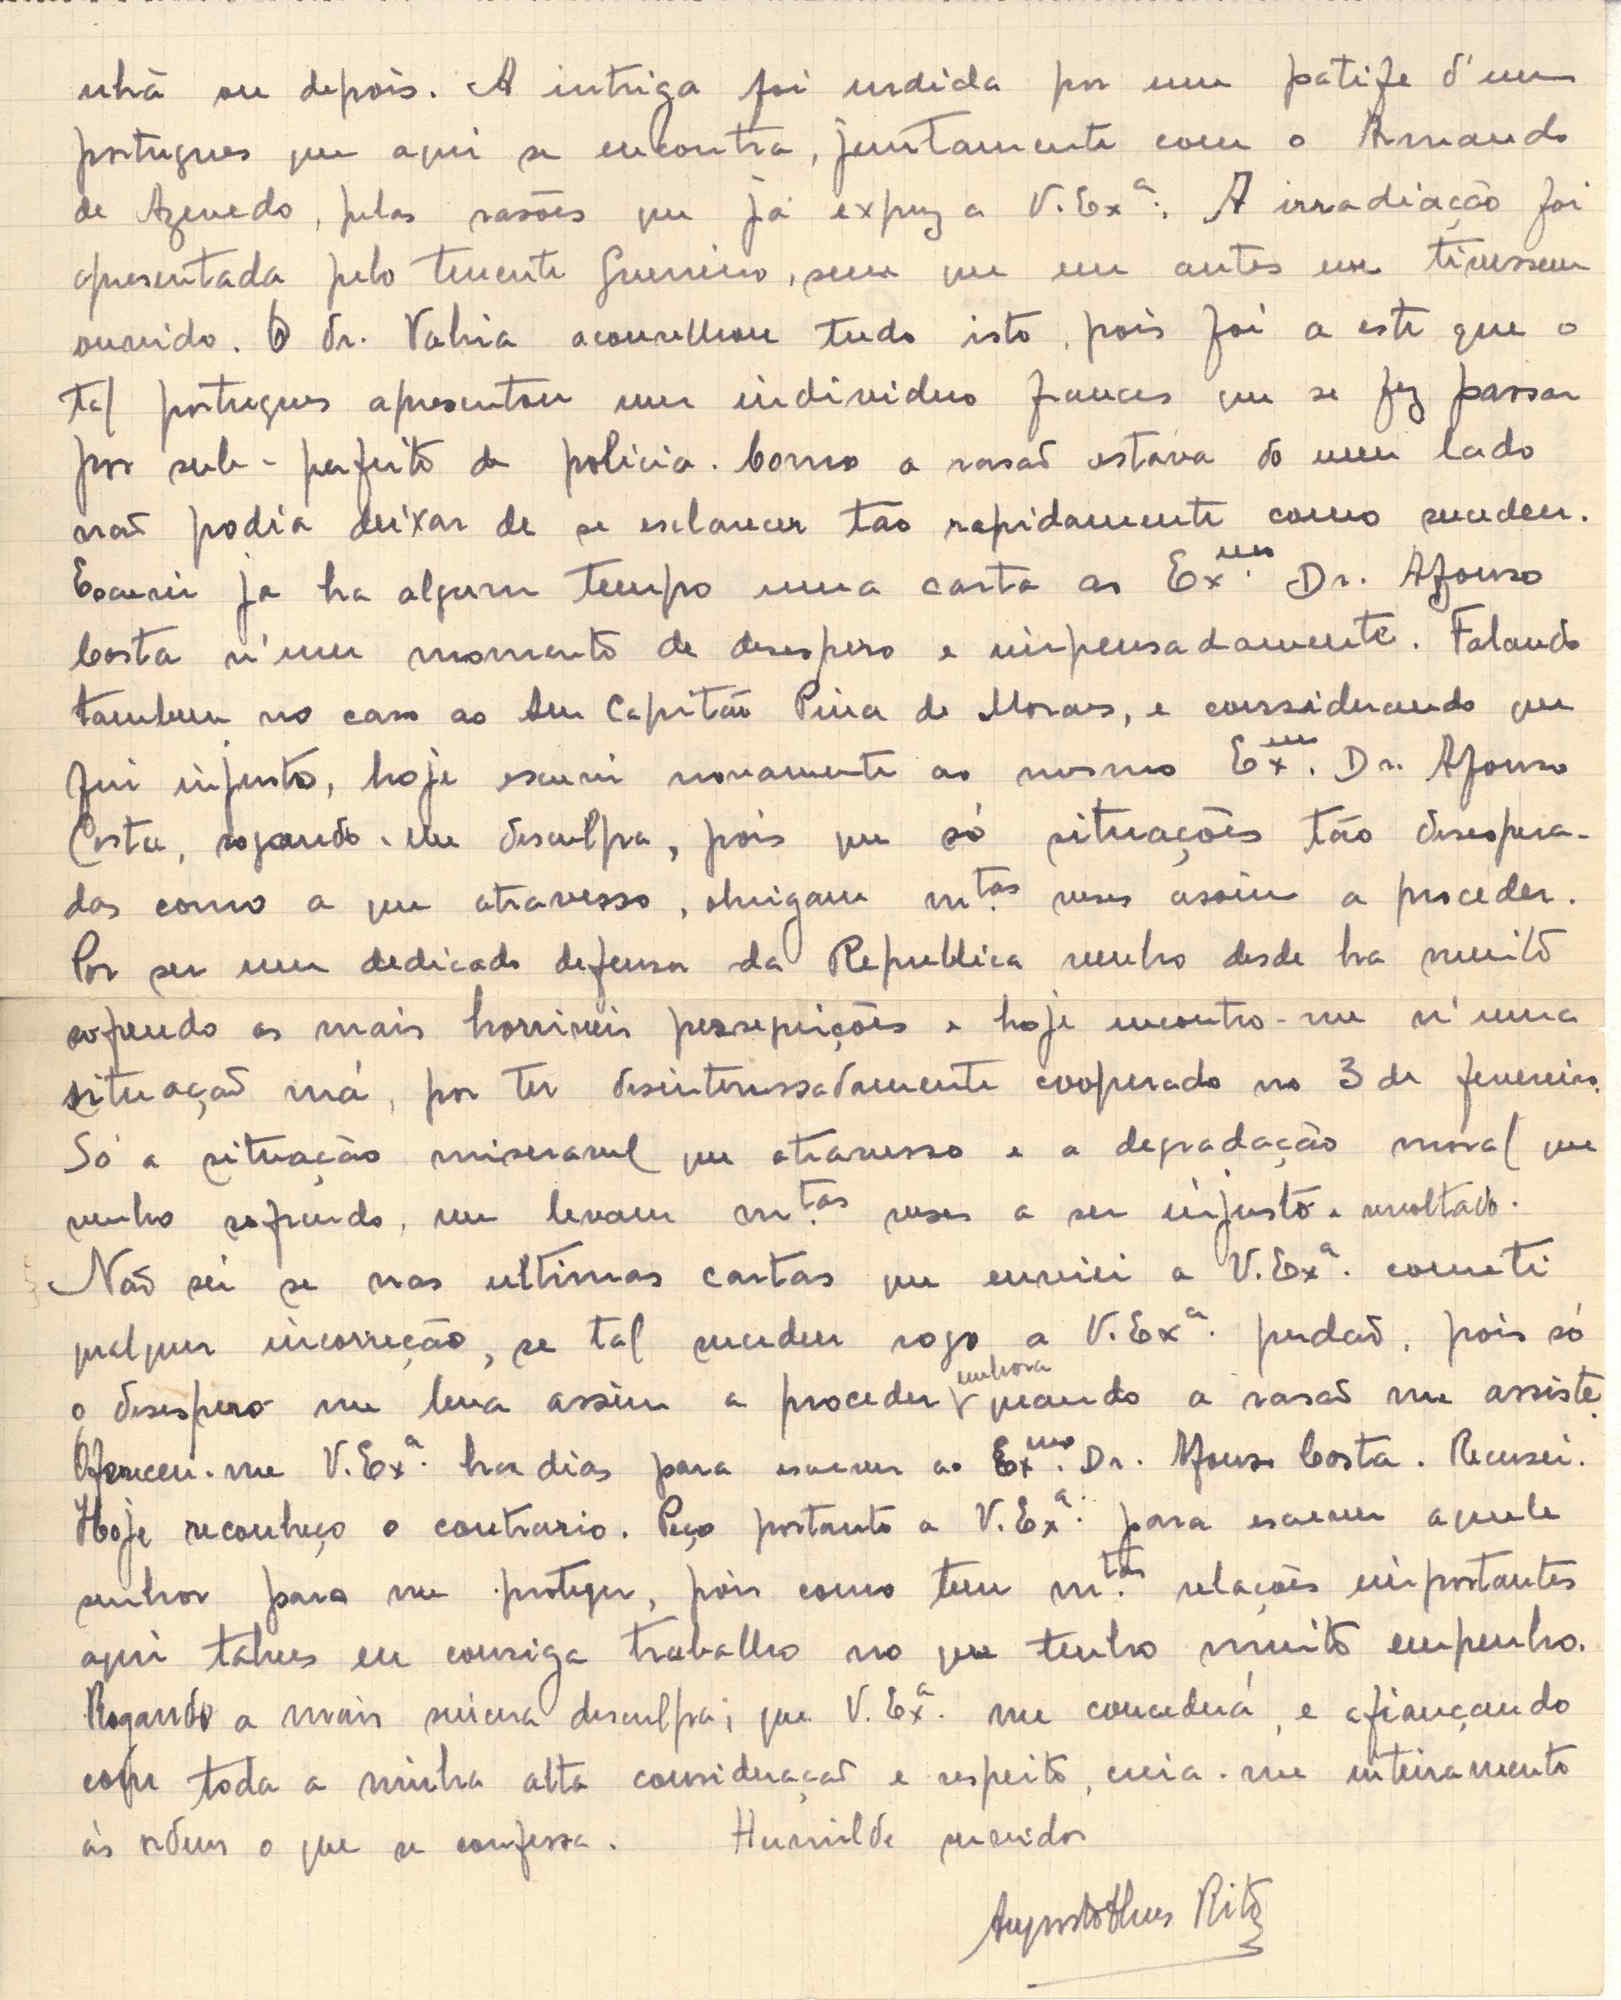 nhã ou depois. A intriga foi urdida por um patife d'um
portugues que aqui se encontra, juntamente com o Armando
de Azevedo, pelas rasões que já expuz a V. Exª. A irradiação foi
apresentada pelo tenente Guerreiro, sem que eu antes me tivessem
ouvido. O dr. Vahia aconselhou tudo isto, pois foi a este que o
tal portugues apresentou um individuo frances que se fez passar
por sub-perfeito de policia. Como a rasaõ estava do meu lado
naõ podia deixar de se esclarecer tão rapidamente como sucedeu.
Escrevi ja ha algum tempo uma carta ao Exmo. Dr. Afonso
Costa n'um momento de desespero e impensadamente. Falando
tambem no caso ao Snr Capitão Pina de Moraes, e considerando que
fui injusto, hoje escrevi novamente ao mesmo Exmo. Dr. Afonso
Costa, rogando-me desculpa, pois que só situações tão desespera-
das como a que atravesso, obrigam mtas. veses assim a proceder.
Por ser um dedicado defensor da Republica venho desde ha muito
sofrendo as mais horriveis persepuições e hoje encontro-me n'uma
situaçaõ má, por ter desinteressadamente cooperado no 3 de fevereiro.
Só a situação miseravel que atravesso e a degradação moral que
venho sofrendo, me levam mtas. veses a ser injusto e revoltado.
Naõ sei se nas ultimas cartas que enviei a V. Exª. cometi
qualquer incorreção, se tal sucedeu rogo a V. Exª. perdaõ, pois só
o desespero me leva assim a proceder embora quando a rasaõ me assiste.
Ofereceu-me V. Exª. ha dias para escrever ao Exmo. Dr. Afonso Costa. Recusei.
Hoje reconheço o contrario. Peço portanto a V. Exª. para escrever aquele
senhor para me proteger, pois como tem mtas. relações importantes
aqui talves eu consiga trabalho no que tenho muito empenho.
Rogando a mais sincera desculpa, que V. Exª. me concederá, e afiançando
com toda a minha alta consideraçaõ e respeito, creia-me inteiramente
ás ordens o que se confessa. Humilde servidor
Rito